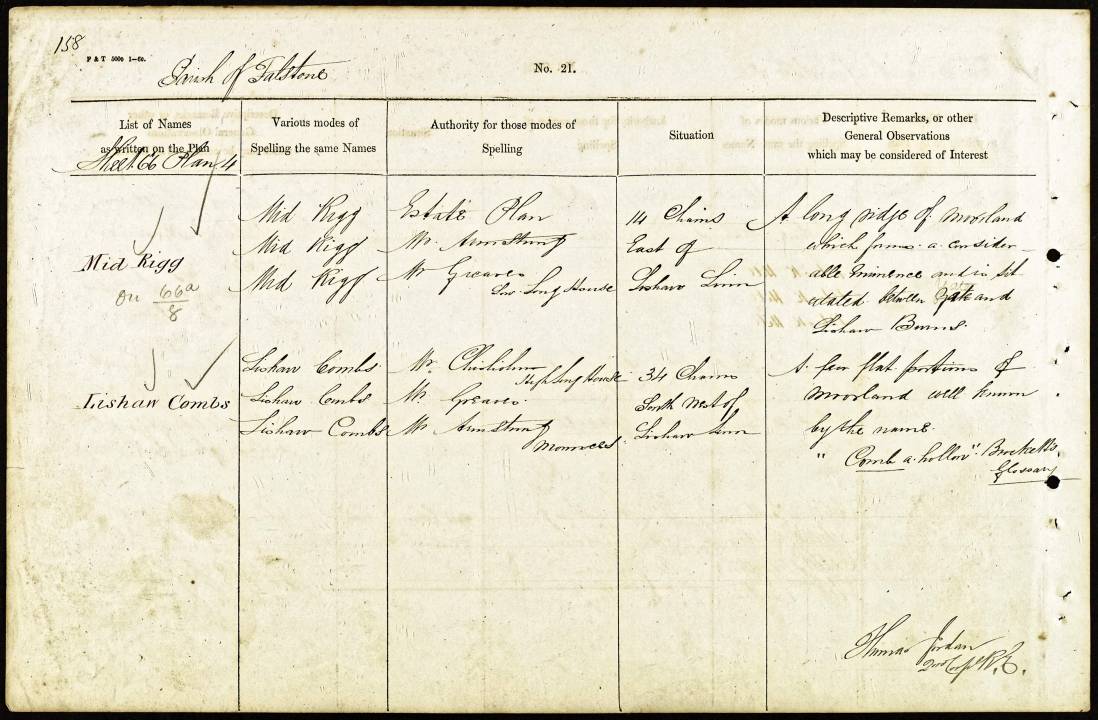 158
F & T 5000 1–60.
Parish of Falstone
No. 21.
List of Names
as written on the Plan
Various modes of
Spelling the same Names
Authority for those modes of
Spelling
Situation
Descriptive Remarks, or other
General Observations
which may be considered of Interest
Sheet 66 Plan 4
Mid Rigg
on 66a
8
Mid Rigg
Mid Rigg
Mid Rigg
Estate Plan
Mr. Armstrong
Mr Greaves
Low Long House
14 Chains
East of
Lishaw Linn
A long ridge of Moorland
which forms a consider-
able eminence and is sit
uated between and
Lishaw Burns.
Lishaw Combs
Lishaw Combs
Lishaw Combs
Lishaw Combs
Mr. Chisholm
High Long House
Mr Greaves.
Mr Armstrong
Mounces.
34 Chains
South West of
Lishaw Linn
A few flat portions of
Moorland well known
by the name.
" Comb a hollow". Brockett's
Glossary
Thomas Jordan
2nd Corpl R.E.